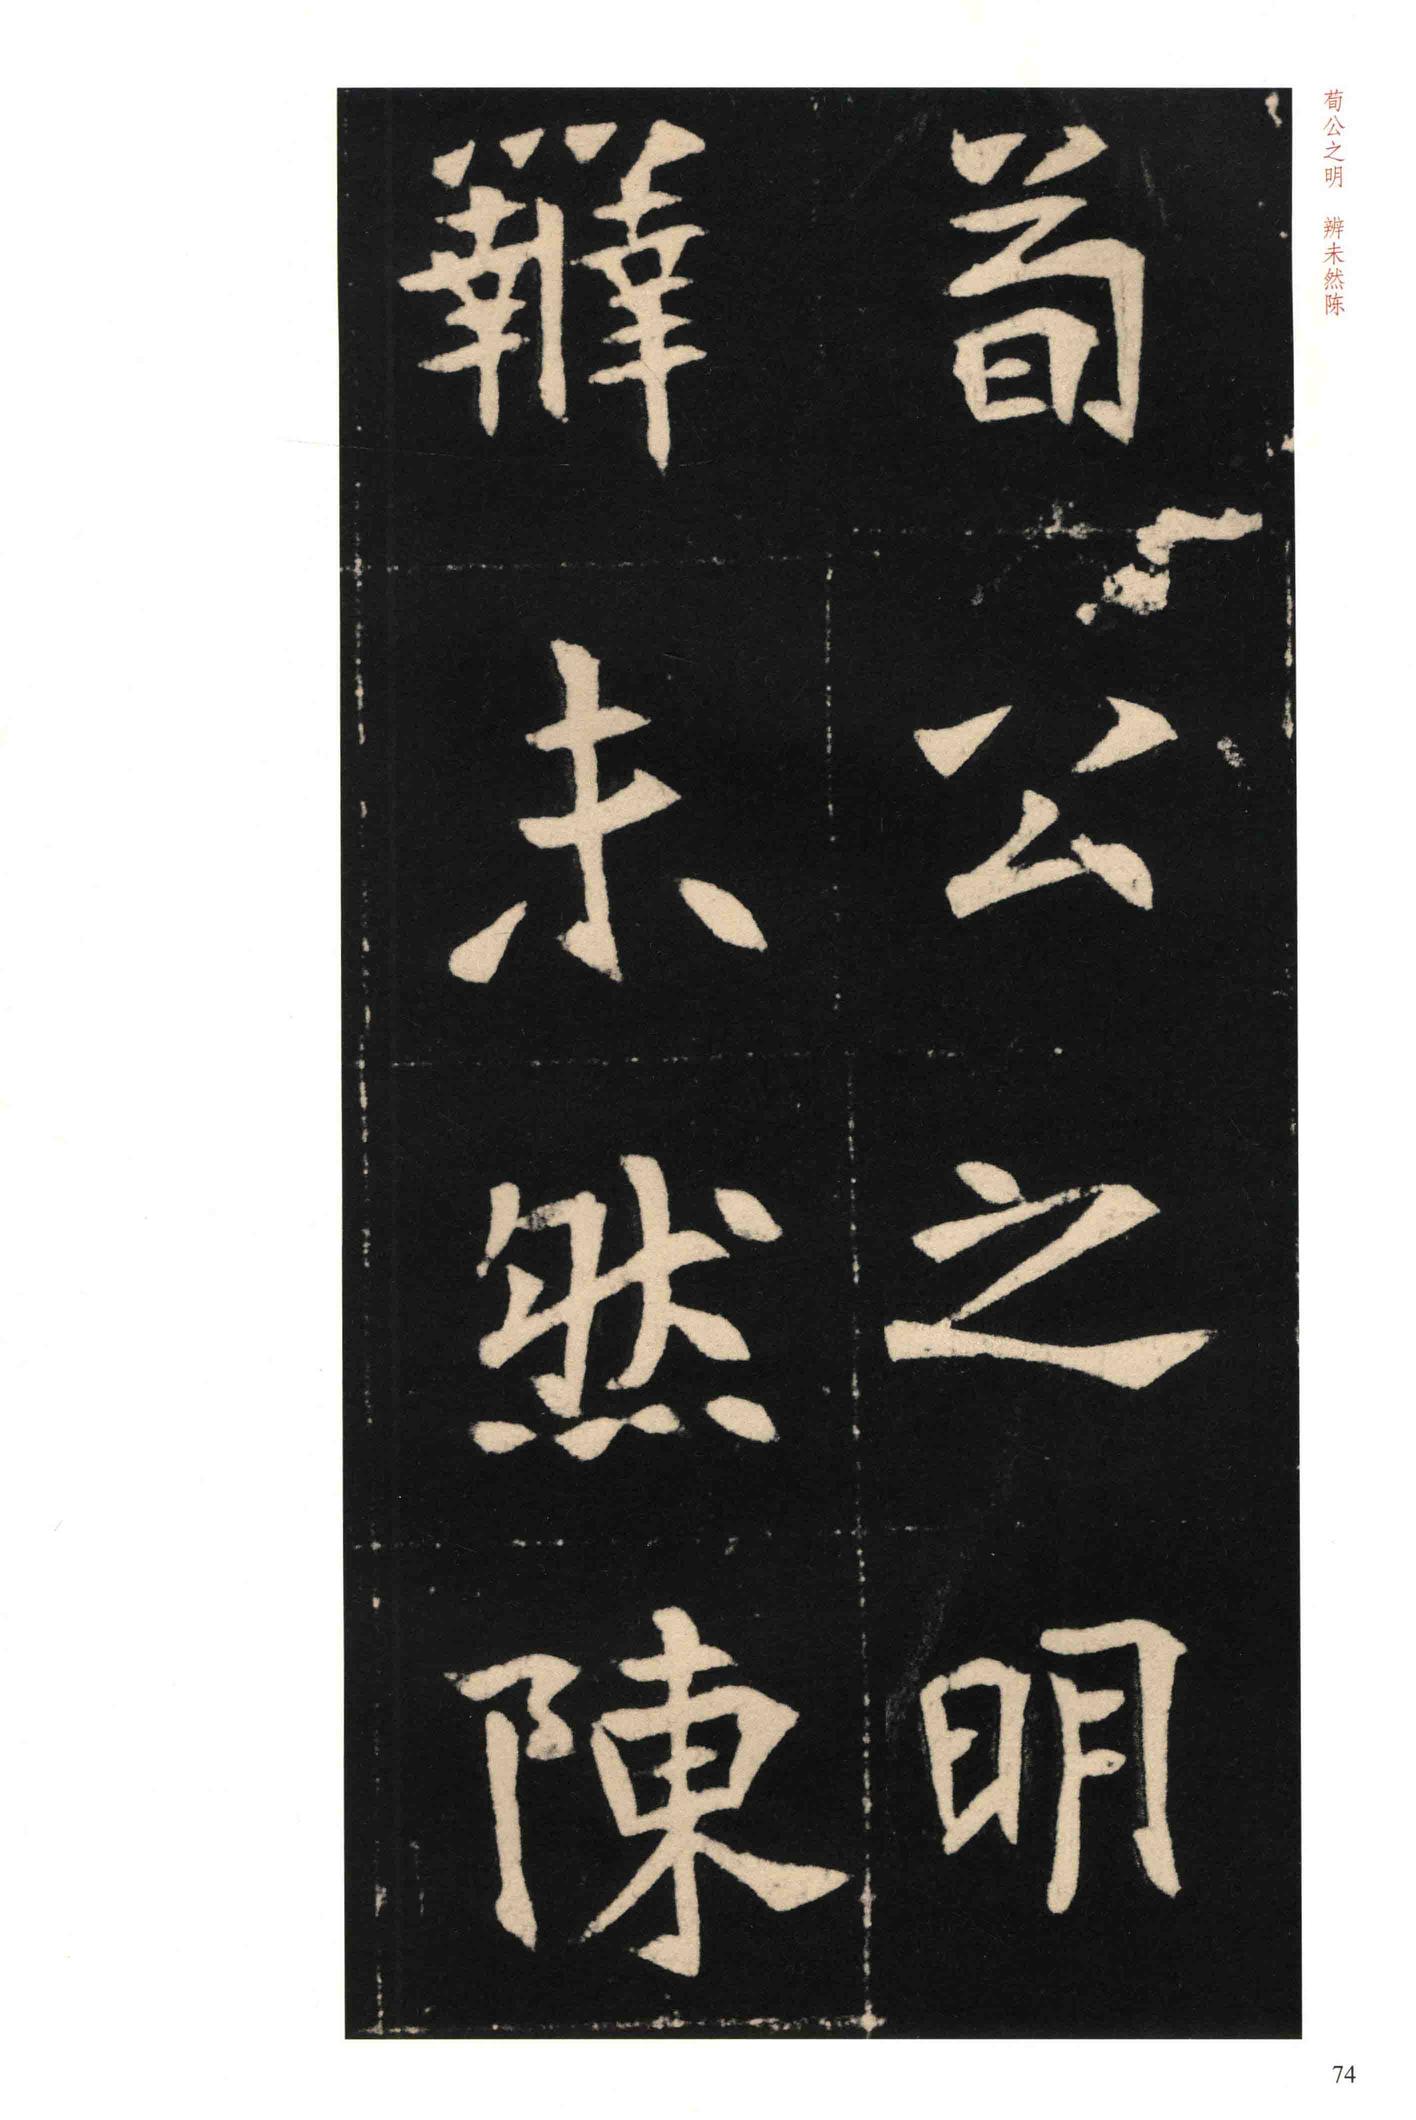 荀公之明　辨未然陈
荀公之明
辨未然陳
74